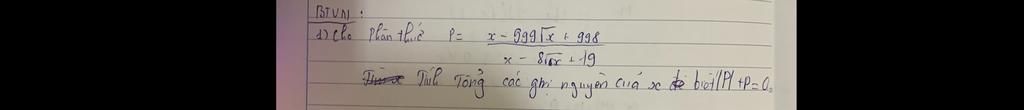 BTVN :
1) Cho Phân thức P = x - 999√x + 998
x - 8√x + 19
Tính Tổng các gtrị nguyên của x để biết |P| + P = 0.